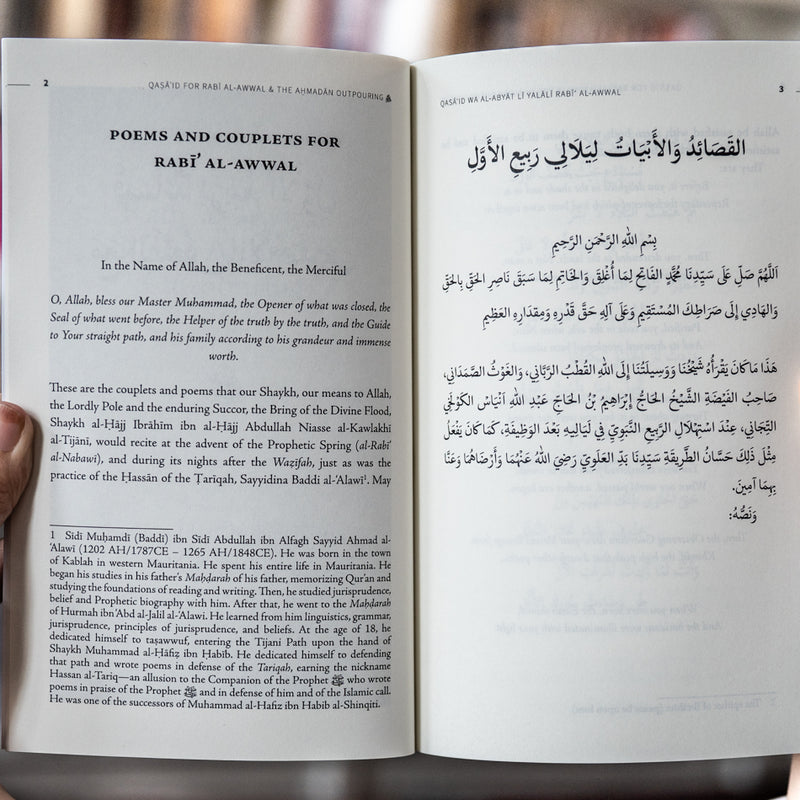 2
QAṢĀ'ID FOR RABĪ AL-AWWAL & THE AḤMADĀN OUTPOURING
POEMS AND COUPLETS FOR
RABĪ' AL-AWWAL
In the Name of Allah, the Beneficent, the Merciful
O, Allah, bless our Master Muhammad, the Opener of what was closed, the
Seal of what went before, the Helper of the truth by the truth, and the Guide
to Your straight path, and his family according to his grandeur and immense
worth.
These are the couplets and poems that our Shaykh, our means to Allah,
the Lordly Pole and the enduring Succor, the Bring of the Divine Flood,
Shaykh al-Ḥājj Ibrāhīm ibn al-Ḥājj Abdullah Niasse al-Kawlakhi
al-Tijānī, would recite at the advent of the Prophetic Spring (al-Rabi'
al-Nabawi), and during its nights after the Waẓīfah, just as was the
practice of the Ḥassān of the Ṭarīqah, Sayyidina Baddi al-'Alawi¹. May
1 Sīdī Muḥamdī (Baddī) ibn Sīdī Abdullah ibn Alfagh Sayyid Ahmad al-
'Alawī (1202 AH/1787CE – 1265 AH/1848CE). He was born in the town
of Kablah in western Mauritania. He spent his entire life in Mauritania. He
began his studies in his father's Maḥḍarah of his father, memorizing Qur'an and
studying the foundations of reading and writing. Then, he studied jurisprudence,
belief and Prophetic biography with him. After that, he went to the Maḥḍarah
of Hurmah ibn 'Abd al-Jalil al-'Alawi. He learned from him linguistics, grammar,
jurisprudence, principles of jurisprudence, and beliefs. At the age of 18, he
dedicated himself to taṣawwuf, entering the Tijani Path upon the hand of
Shaykh Muhammad al-Ḥāfiẓ ibn Ḥabib. He dedicated himself to defending
that path and wrote poems in defense of the Tariqah, earning the nickname
Hassan al-Tariq—an allusion to the Companion of the Prophet ﷺ who wrote
poems in praise of the Prophet ﷺ and in defense of him and of the Islamic call.
He was one of the successors of Muhammad al-Hafiz ibn Habib al-Shinqiti.
QAṢĀ'ID WA AL-ABYĀT LĪ YALĀLĪ RABĪ' AL-AWWAL
3
القَصَائِدُ وَالأَبْيَاتُ لِيَلَالِي رَبِيعِ الأَوَّلِ
بِسْمِ اللهِ الرَّحْمَنِ الرَّحِيمِ
اَللَّهُمَّ صَلِّ عَلَى سَيِّدِنَا مُحَمَّدٍ الفَاتِحِ لِمَا أُغْلِقَ وَالخَاتِمِ لِمَا سَبَقَ نَاصِرِ الحَقِّ بِالحَقِّ
وَالهَادِي إِلَى صَرَاطِكَ المُسْتَقِيمِ وَعَلَى آلِهِ حَقَّ قَدْرِهِ وَمِقْدَارِهِ العَظِيمِ
هَذَا مَا كَانَ يَقْرَأُهُ شَيْخُنَا وَوَسِيلَتُنَا إِلَى اللهِ القُطْبُ الرَّبَّانِي، وَالغَوْثُ الصَّمَدَانِي،
صَاحِبُ الفَيْضَةِ الشَّيْخُ الحَاجُّ إِبْرَاهِيمُ بْنُ الحَاجِّ عَبْدِ اللهِ اَنْيَاسْ الكَوْلَخِي
التِّجَانِي، عِنْدَ اسْتِهْلَالِ الرَّبِيعِ النَّبَوِيِّ فِي لَيَالِيهِ بَعْدَ الوَظِيفَةِ، كَمَا كَانَ يَفْعَلُ
مِثْلَ ذَلِكَ حَسَّانُ الطَّرِيقَةِ سَيِّدِنَا بَدِّ العَلَوِي رَضِيَ اللهُ عَنْهُمَا وَأَرْضَاهُمَا وَعَنَّا
بِهِمَا آمِينَ.
وَنَصُّهُ: